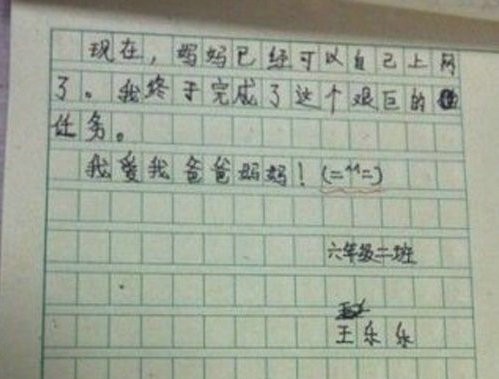 现在，妈妈已经可以自己上网
了。我终于完成了这个艰巨的
任务。
我爱我爸爸妈妈！(=^^=)
六年级二班
王乐乐